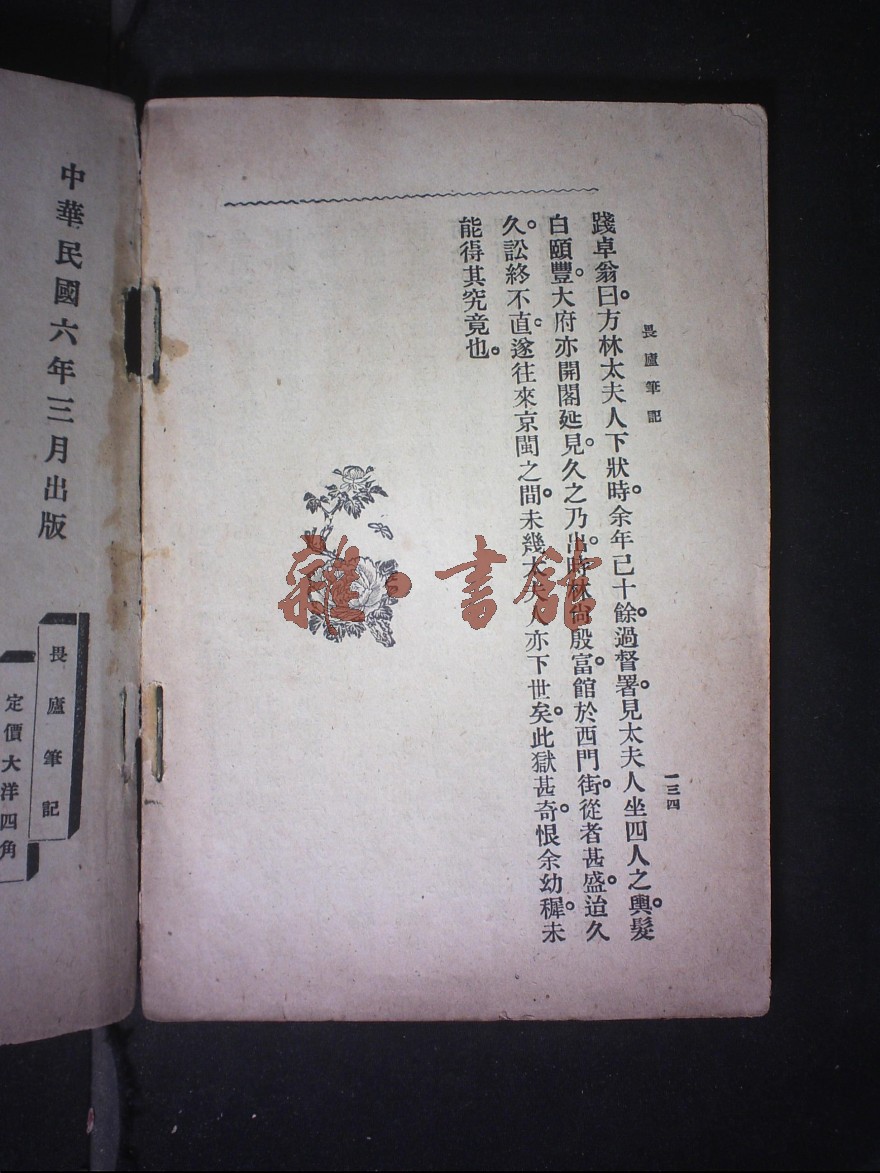 畏廬筆記
一三四
踐卓翁曰。方林太夫人下狀時。余年已十餘。過督署。見太夫人坐四人之輿。髮
白頤豐。大府亦開閣延見。久之乃出。時林尙殷富。館於西門街。從者甚盛。迨久
久。訟終不直。遂往來京閩之間。未幾太夫人亦下世矣。此獄甚奇。恨余幼穉。未
能得其究竟也。
雜·書館
中華民國六年三月出版
畏廬筆記
定價大洋四角